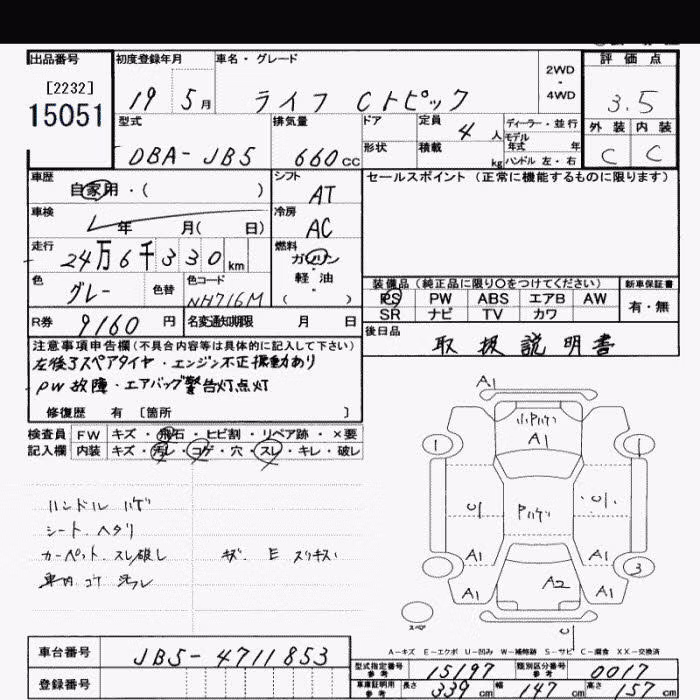 出品番号 初度登録年月 車名・グレード 2WD・4WD 評価点
[2232]
15051
19 5月 ライフ Cトピック 3.5
型式 排気量 ドア 定員 4 人 ディーラー・並行 外装 内装
モデル年式 年
DBA-JB5 660cc 形状 積載 kg ハンドル 左・右 C C
車歴 シフト セールスポイント (正常に機能するものに限ります)
自家用・( ) AT
車検 冷房
年 月( 日) AC
走行 燃料
24万6千330km ガソリン
色 色替 色コード 軽油
グレー NH716M ( )
装備品 (純正品に限り○をつけてください) 新車保証書
PS PW ABS エアB AW 有・無
SR ナビ TV カワ
R券 9160円 名変通知期限 月 日
後日品 取扱説明書
注意事項申告欄(不具合内容等は具体的に記入して下さい)
左後ろスペアタイヤ・エンジン不正振動あり
PW故障・エアバッグ警告灯点灯
修復歴 有 [箇所 ]
検査員 FW キズ・飛石・ヒビ割・リペア跡・×要
記入欄 内装 キズ・汚レ・コゲ・穴・スレ・キレ・破レ
ハンドル ハゲ
シート ヘタリ
カーペット スレ/破レ キズ E スリキズ
車内 コゲ 汚レ
A1
小Pハゲ
A1
1 1
U1 Pハゲ U1
A1 A1
3
A1 A2 A1
スペア
A-キズ E-エクボ U-凹み W-補修跡 S-サビ C-腐食 XX-交換済
車台番号 JB5-4711853
型式指定番号 参考 15197 類別区分番号 参考 0017
登録番号
車庫証明用 参考 長さ 339cm 幅 147cm 高さ 157cm